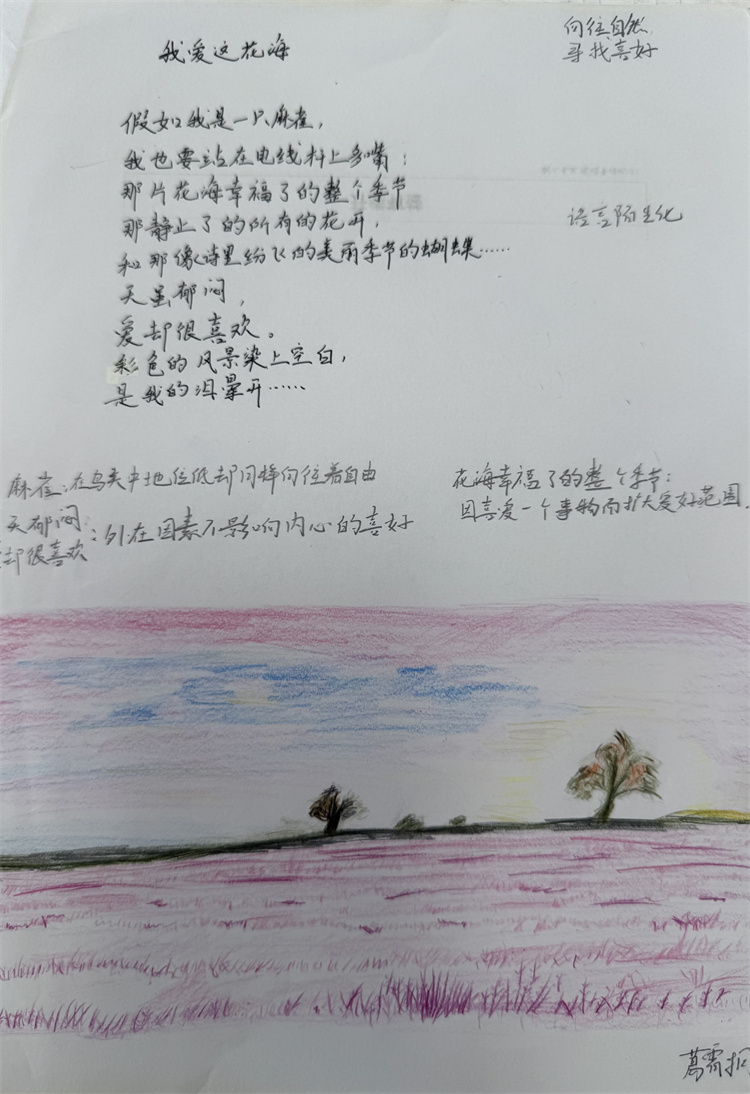 我爱这花海
向往自然
寻找喜好
假如我是一只麻雀，
我也要站在电线杆上多嘴：
那片花海幸福了的整个季节
那静止了的所有的花开，
和那像诗里纷飞的美丽季节的蝴蝶……
语言陌生化
天虽郁闷，
爱却很喜欢。
彩色的风景染上空白，
是我的泪晕开……
麻雀：在鸟类中地位低却同样向往着自由
天郁闷
却很喜欢：外在因素不影响内心的喜好
花海幸福了的整个季节：
因喜爱一个事物而扩大爱好范围.
葛霈桐